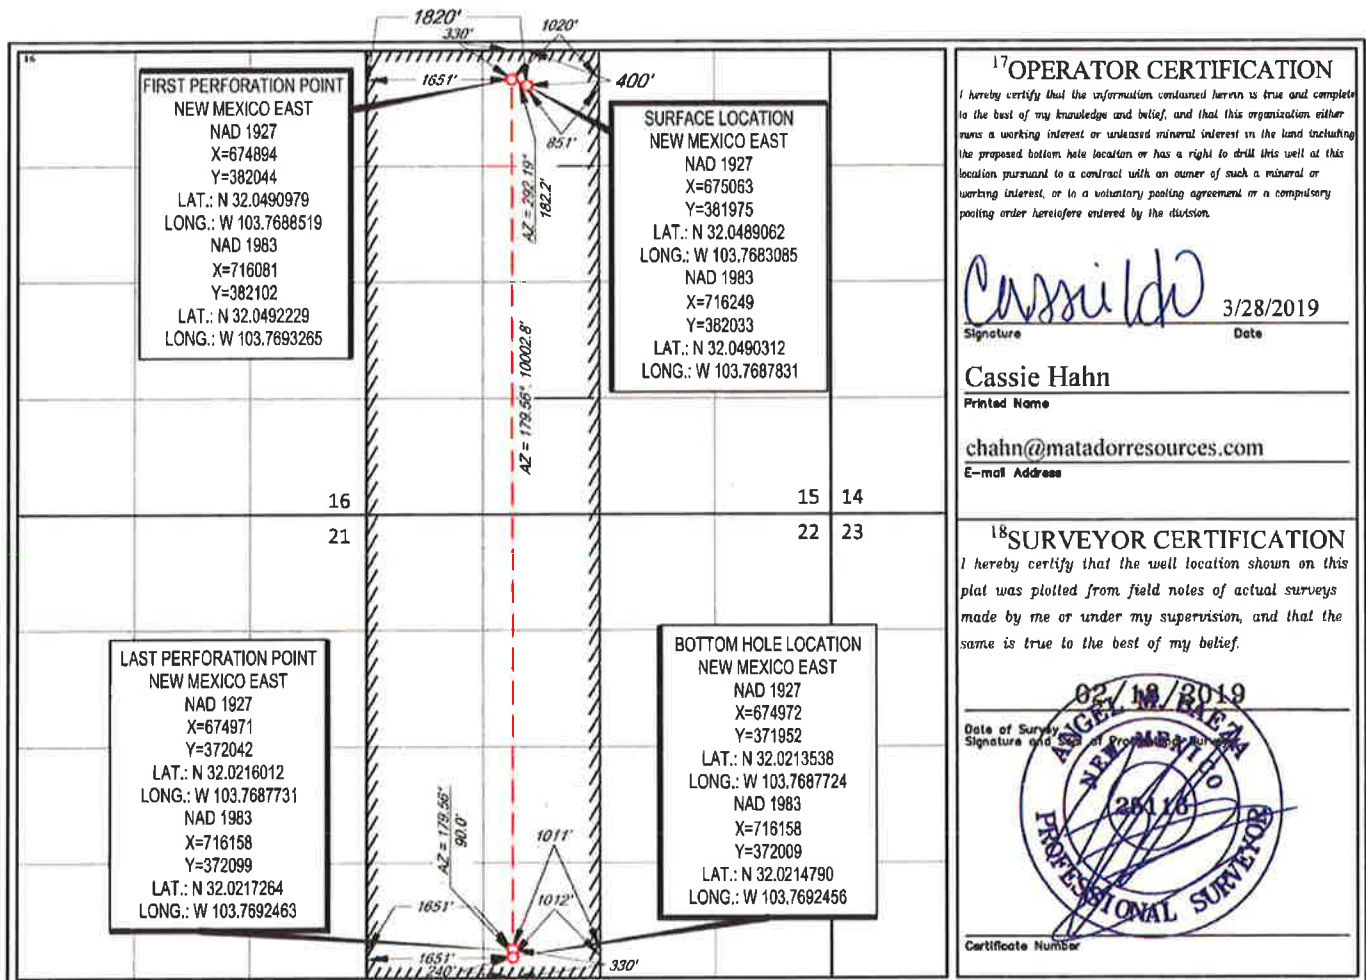 1820'
330'
1020'
16
1651'
400'
851'
AZ = 292.19°
182.2'
FIRST PERFORATION POINT
NEW MEXICO EAST
NAD 1927
X=674894
Y=382044
LAT.: N 32.0490979
LONG.: W 103.7688519
NAD 1983
X=716081
Y=382102
LAT.: N 32.0492229
LONG.: W 103.7693265
SURFACE LOCATION
NEW MEXICO EAST
NAD 1927
X=675063
Y=381975
LAT.: N 32.0489062
LONG.: W 103.7683085
NAD 1983
X=716249
Y=382033
LAT.: N 32.0490312
LONG.: W 103.7687831
AZ = 179.56°, 10002.8'
16
15
14
21
22
23
LAST PERFORATION POINT
NEW MEXICO EAST
NAD 1927
X=674971
Y=372042
LAT.: N 32.0216012
LONG.: W 103.7687731
NAD 1983
X=716158
Y=372099
LAT.: N 32.0217264
LONG.: W 103.7692463
BOTTOM HOLE LOCATION
NEW MEXICO EAST
NAD 1927
X=674972
Y=371952
LAT.: N 32.0213538
LONG.: W 103.7687724
NAD 1983
X=716158
Y=372009
LAT.: N 32.0214790
LONG.: W 103.7692456
AZ = 179.56°
90.0'
1011'
1012'
1651'
1651'
240'
330'
17 OPERATOR CERTIFICATION
I hereby certify that the information contained herein is true and complete
to the best of my knowledge and belief, and that this organization either
owns a working interest or unleased mineral interest in the land including
the proposed bottom hole location or has a right to drill this well at this
location pursuant to a contract with an owner of such a mineral or
working interest, or to a voluntary pooling agreement or a compulsory
pooling order heretofore entered by the division.
3/28/2019
Signature
Date
Cassie Hahn
Printed Name
chahn@matadorresources.com
E-mail Address
18 SURVEYOR CERTIFICATION
I hereby certify that the well location shown on this
plat was plotted from field notes of actual surveys
made by me or under my supervision, and that the
same is true to the best of my belief.
02/18/2019
Date of Survey
Signature and Seal of Professional Surveyor
ANGEL M. BAEZA
NEW MEXICO
25116
PROFESSIONAL SURVEYOR
Certificate Number